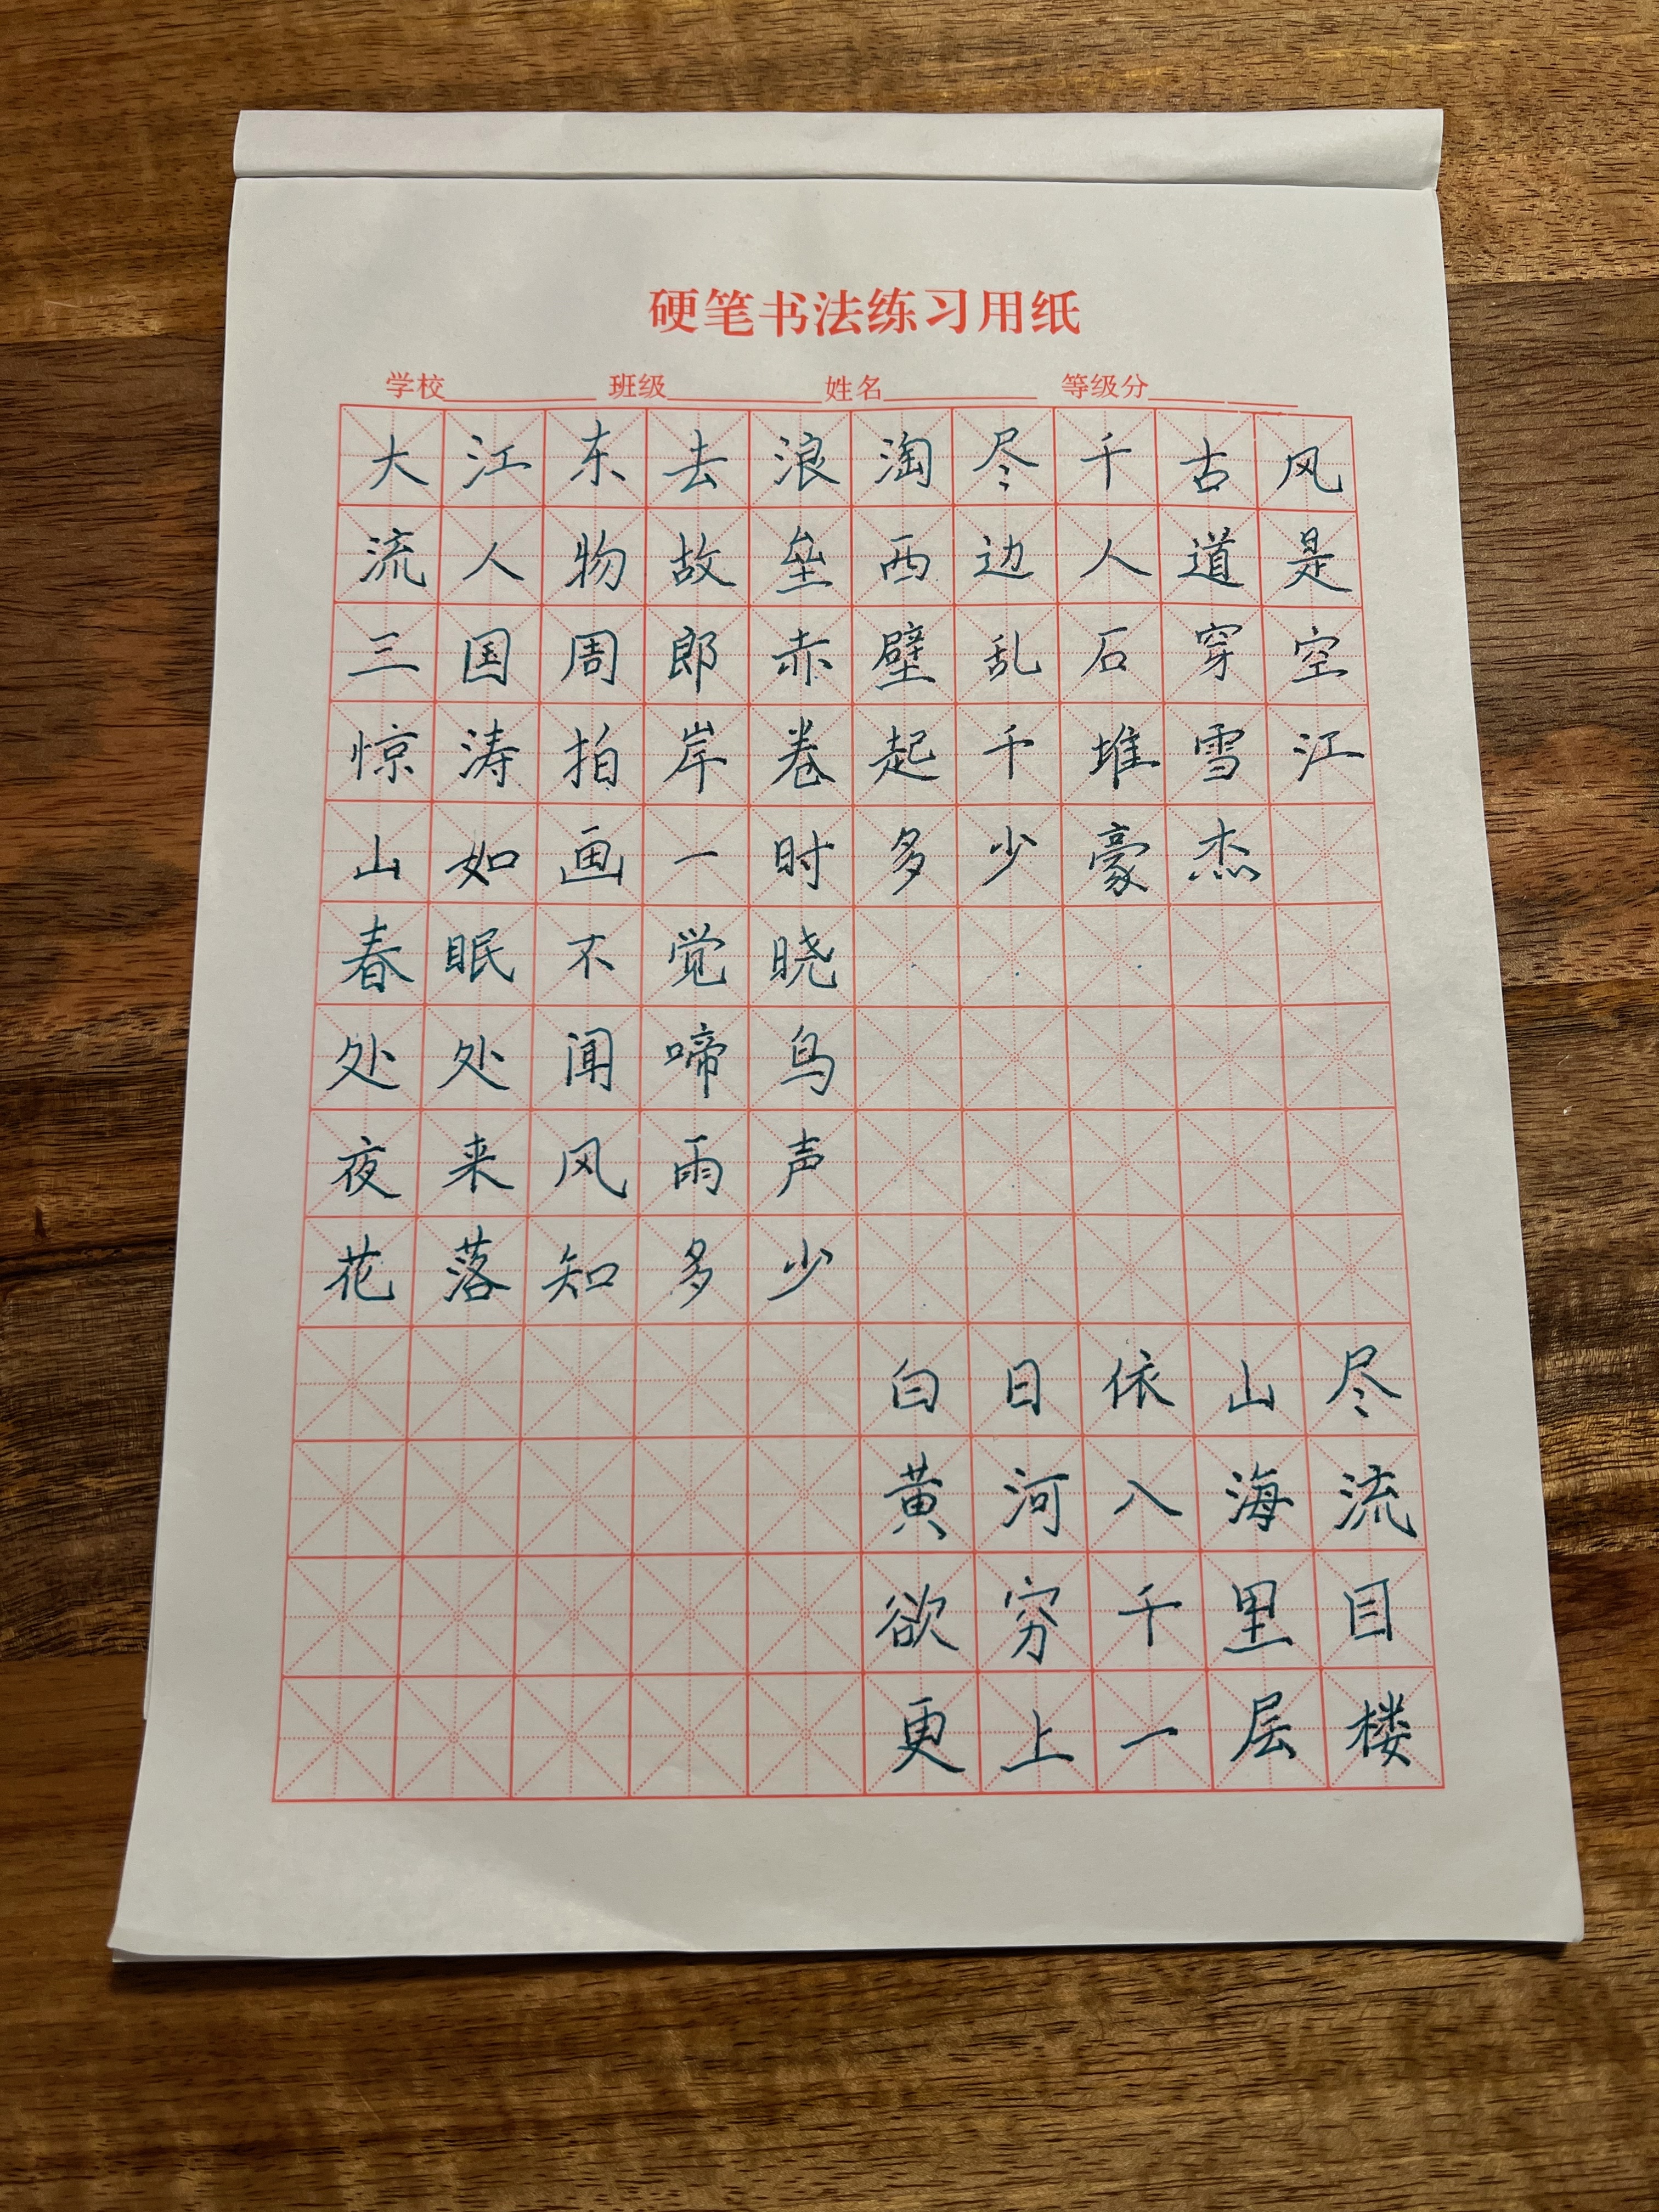 硬笔书法练习用纸
学校 班级 姓名 等级分
大江东去浪淘尽千古风
流人物故垒西边人道是
三国周郎赤壁乱石穿空
惊涛拍岸卷起千堆雪江
山如画一时多少豪杰
春眠不觉晓
处处闻啼鸟
夜来风雨声
花落知多少
白日依山尽
黄河入海流
欲穷千里目
更上一层楼